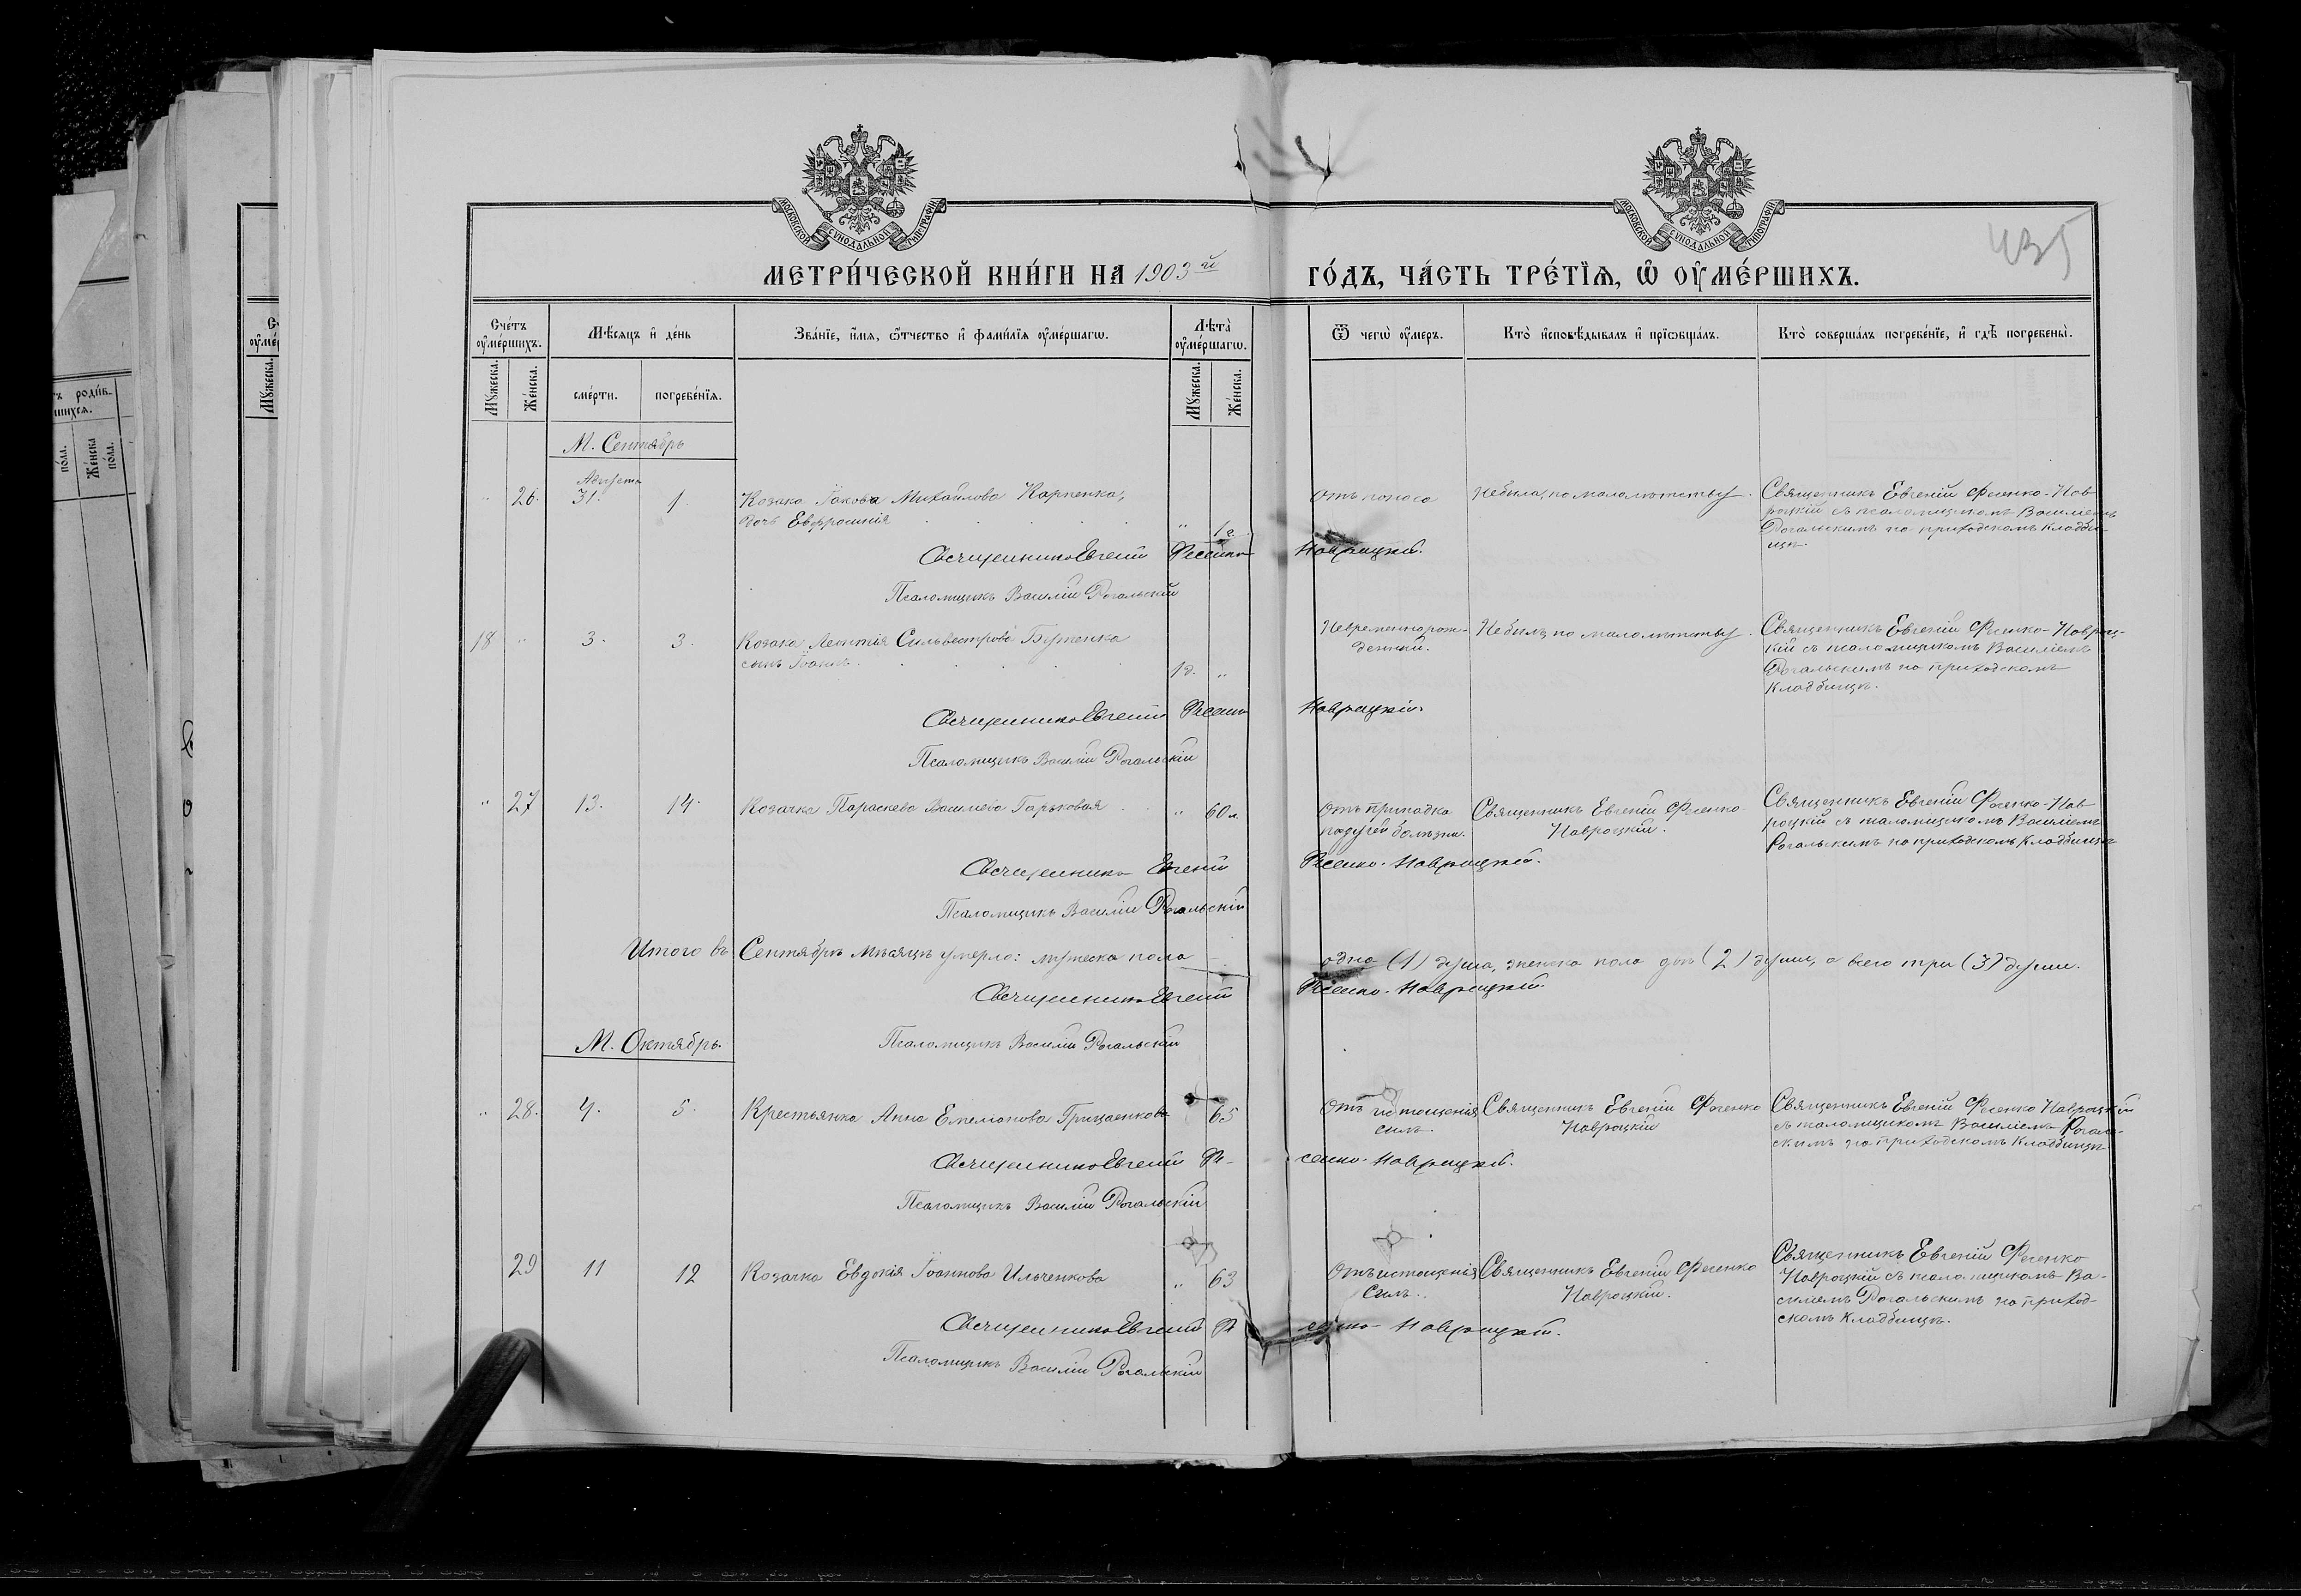 МОСКОВСКОЙ СУНОДАЛЬНОЙ ТИПОГРАФІИ
МОСКОВСКОЙ СУНОДАЛЬНОЙ ТИПОГРАФІИ
435
МЕТРИ́ЧЕСКОЙ КНИ́ГИ НА 1903й ГО́ДЪ, ЧА́СТЬ ТРЕ́ТЇѦ, Ѡ҆ ОУ҆МЕ́РШИХЪ.
Сче́тъ оу҆ме́ршихъ.
Мѣ́сяцъ и҆ де́нь
Зва́нїе, и҆́мя, ѻ҆́тчество и҆ фами́лїя оу҆ме́ршагѡ.
Лѣта̀ оу҆ме́ршагѡ.
Ѿ чегѡ̀ оу҆́меръ.
Кто̀ и҆сповѣ́дывалъ и҆ прїѡбща́лъ.
Кто̀ соверша́лъ погребе́нїе, и҆ гдѣ̀ погребены̀.
Мꙋжеска.
Же́нска.
сме́рти.
погребе́нїя.
Мꙋжеска.
Же́нска.
М. Сентябрь
Августа
" 26. 31. 1. Козака Іакова Михайлова Карпенка,
дочь Евфросинія " 1 г.
Отъ поноса
Небыла, по малолѣтству.
Священникъ Евгеній Фесенко-Нав
роцкій съ псаломщикомъ Василіемъ
Рогальскимъ на приходскомъ кладби-
щѣ.
Священникъ Евгеній Фесенко Навроцкій.
Псаломщикъ Василій Рогальскій
18 " 3. 3. Козака Леонтія Сильвестрова Бутенка
сынъ Іоаннъ. "
Невременнорож-
денный.
Небылъ, по малолѣтству.
Священникъ Евгеній Фесенко-Навроц-
кій съ псаломщикомъ Василіемъ
Рогальскимъ на приходскомъ
кладбищѣ.
Священникъ Евгеній Фесенко Навроцкій.
Псаломщикъ Василій Рогальскій
" 27 13. 14. Козачка Параскева Васильева Горьковая " 60 л.
Отъ припадка
падучей болѣзни.
Священникъ Евгеній Фесенко
Навроцкій.
Священникъ Евгеній Фесенко-Нав
роцкій съ псаломщикомъ Василіемъ
Рогальскимъ на приходскомъ кладбищѣ
Священникъ Евгеній Фесенко-Навроцкій.
Псаломщикъ Василій Рогальскій
Итого въ Сентябрѣ мѣсяцѣ умерло: мужеска пола одна (1) душа, женска пола двѣ (2) души, а всего три (3) души.
Священникъ Евгеній Фесенко-Навроцкій.
М. Октябрь.
Псаломщикъ Василій Рогальскій
" 28. 4. 5. Крестьянка Анна Емельянова Грицаенкова 65
Отъ истощенія
силъ
Священникъ Евгеній Фесенко
Навроцкій
Священникъ Евгеній Фесенко Навроцкій
съ псаломщикомъ Василіемъ Рогаль-
скимъ на приходскомъ кладбищѣ
Священникъ Евгеній Фе-сенко-Навроцкій.
Псаломщикъ Василій Рогальскій
29 11 12 Козачка Евдокія Іоаннова Ильченкова " 63
Отъ истощенія
силъ.
Священникъ Евгеній Фесенко
Навроцкій.
Священникъ Евгеній Фесенко
Навроцкій съ псаломщикомъ Ва-
силіемъ Рогальскимъ на приход-
скомъ кладбищѣ.
Священникъ Евгеній Фесенко-Навроцкій.
Псаломщикъ Василій Рогальскій